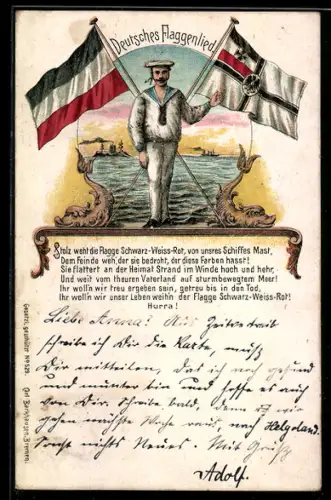 Deutsches Flaggenlied
Stolz weht die Flagge Schwarz-Weiss-Rot, von unsres Schiffes Mast,
Dem Feinde weh, der sie bedroht, der diese Farben hasst!
Sie flattert an der Heimat Strand im Winde hoch und hehr,
Und weit vom theuren Vaterland auf sturmbewegtem Meer!
Ihr woll'n wir treu ergeben sein, getreu bis in den Tod,
Ihr woll'n wir unser Leben weih'n der Flagge Schwarz-Weiss-Rot!
Hurra!
Liebe Anna! Aus
schreibe ich Dir die Karte, muß
Dir mitteilen, daß ich noch gesund
und munter bin und hoffe es auch
von Dir. Schreibe bald, denn wir
gehen nächste Woche raus, nach Helgoland.
Sonst nichts Neues. Mit Gruß
Adolf.
Gesetzl. geschützt No
Bremen.